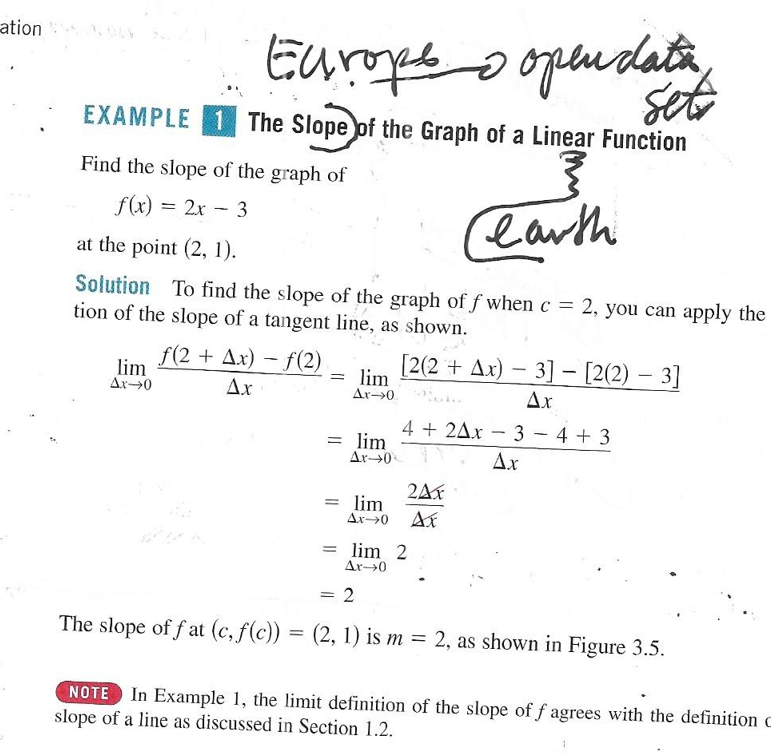 ation
Europe → open data
sets
EXAMPLE 1 The Slope of the Graph of a Linear Function
Find the slope of the graph of
f(x) = 2x − 3
earth
at the point (2, 1).
Solution To find the slope of the graph of f when c = 2, you can apply the
tion of the slope of a tangent line, as shown.
lim Δx→0 f(2 + Δx) − f(2) / Δx = lim Δx→0 [2(2 + Δx) − 3] − [2(2) − 3] / Δx
= lim Δx→0 4 + 2Δx − 3 − 4 + 3 / Δx
= lim Δx→0 2Δx / Δx
= lim Δx→0 2
= 2
The slope of f at (c, f(c)) = (2, 1) is m = 2, as shown in Figure 3.5.
NOTE In Example 1, the limit definition of the slope of f agrees with the definition
slope of a line as discussed in Section 1.2.